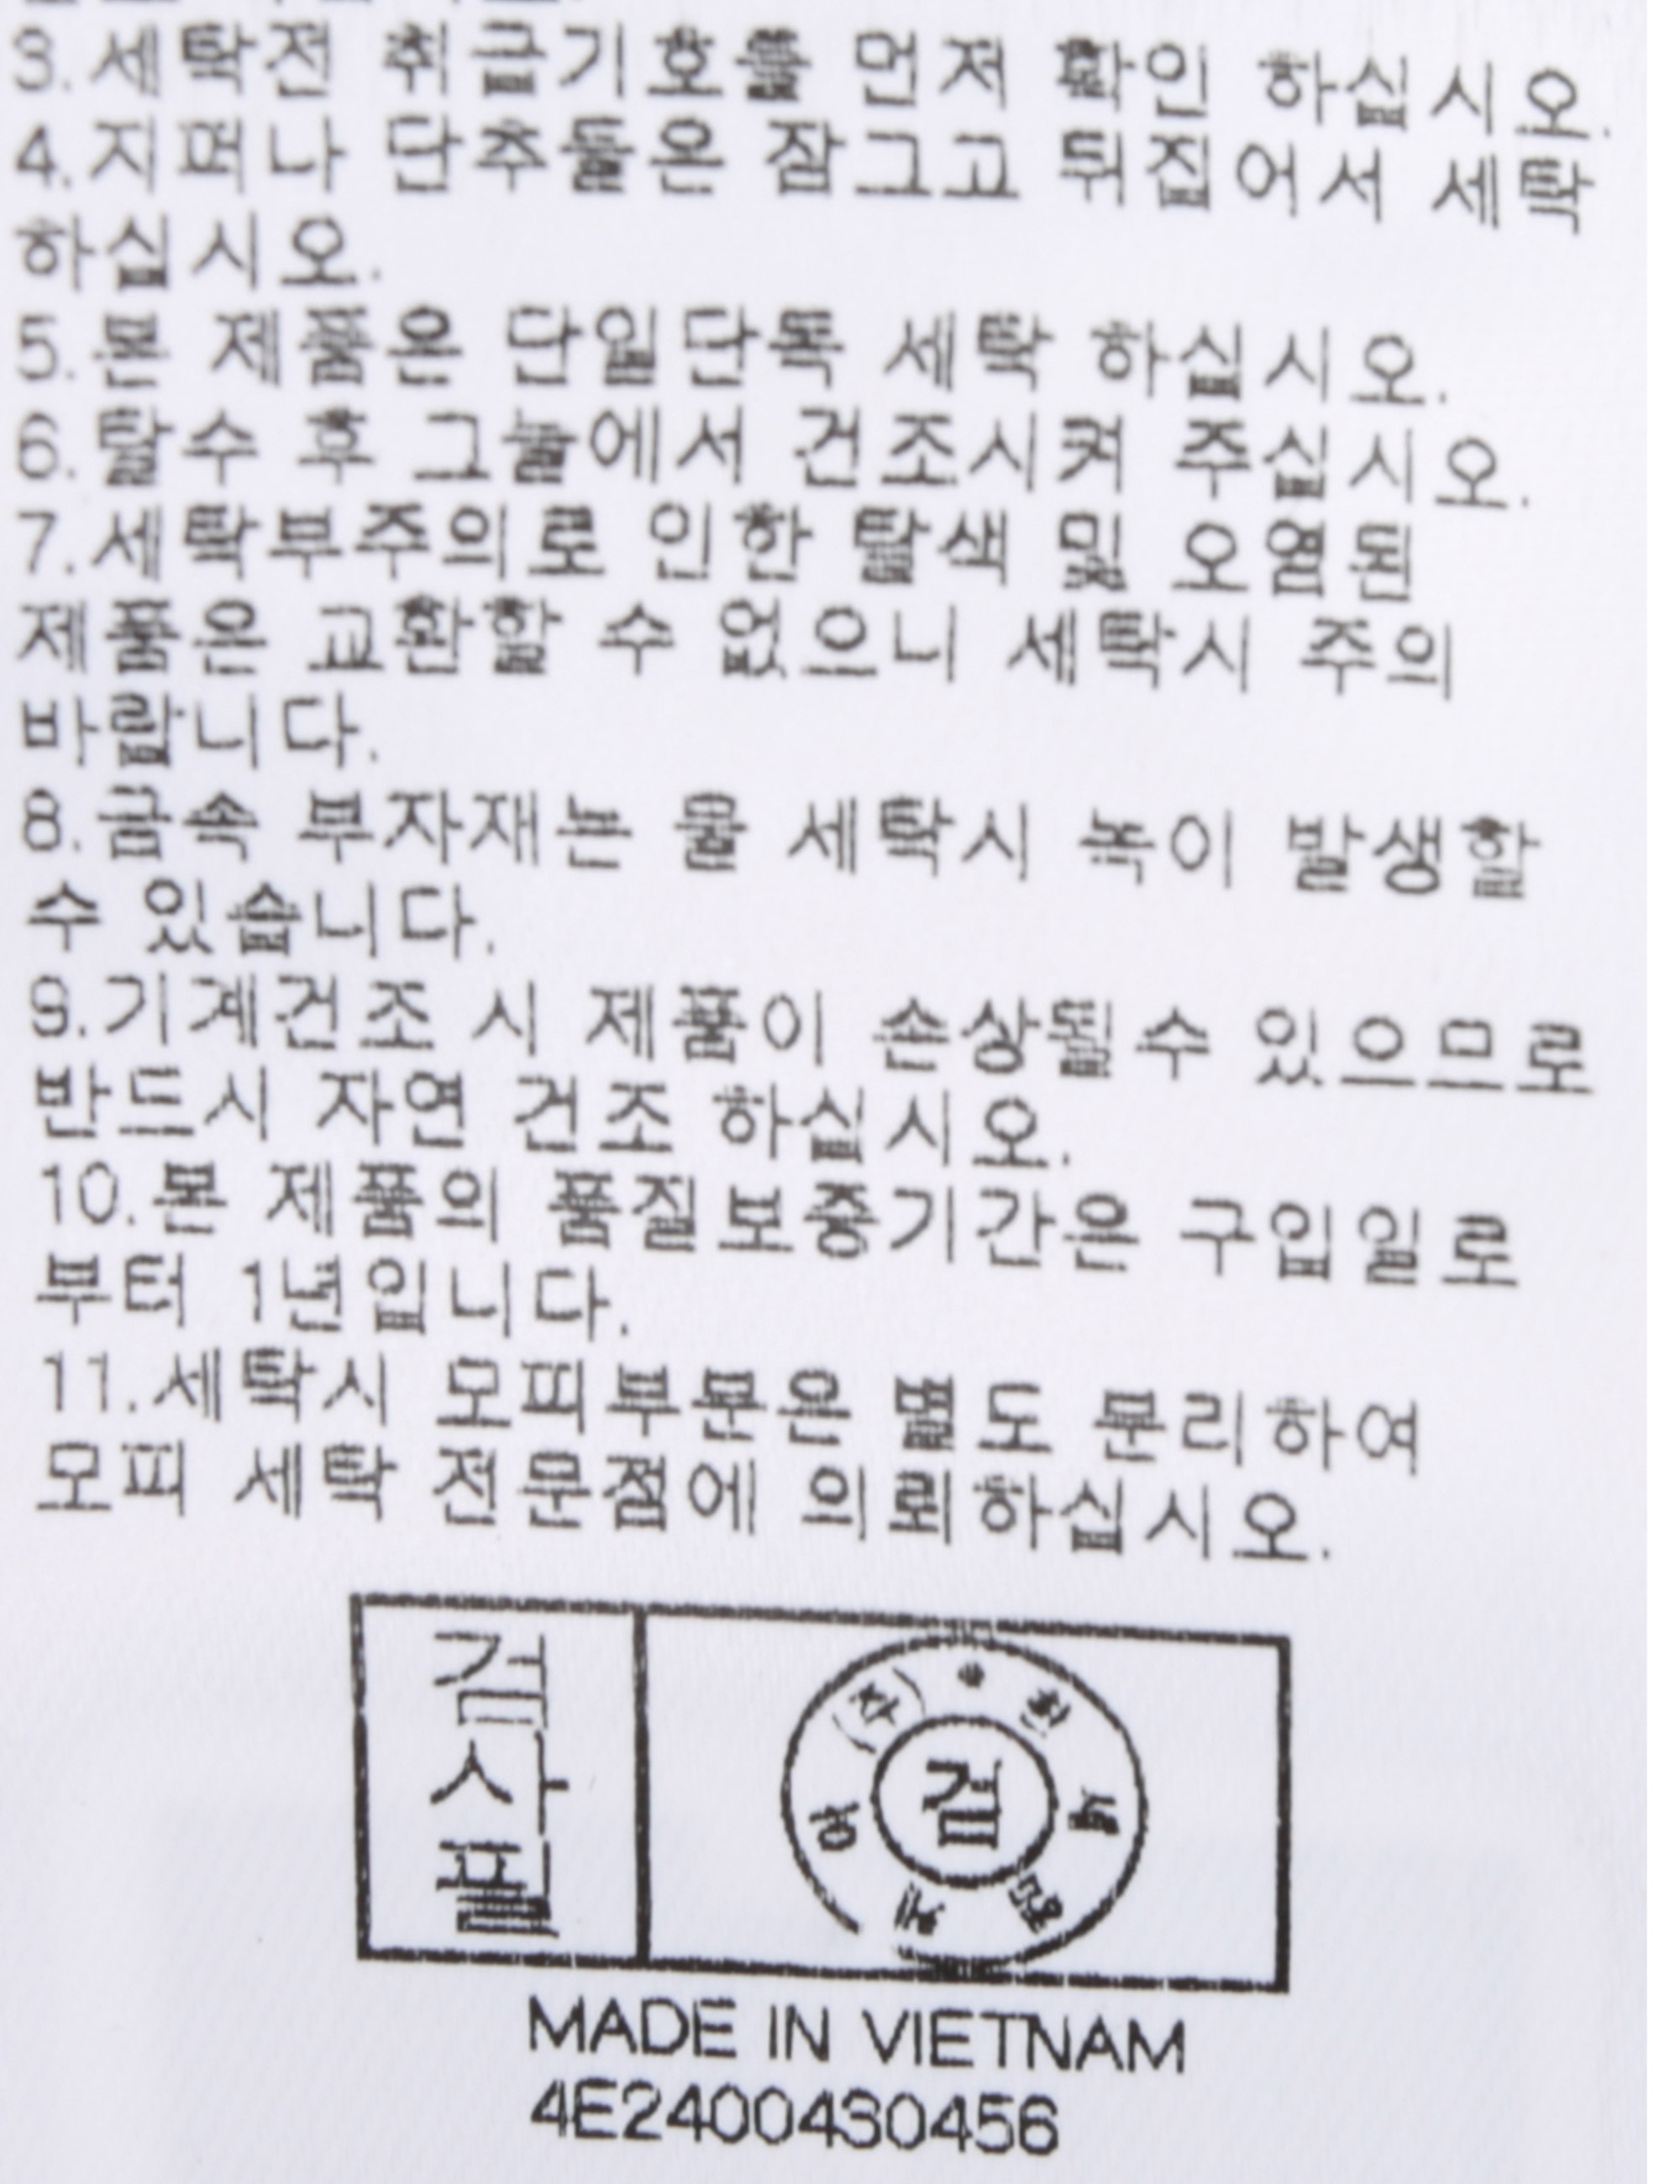 3.세탁전 취급기호를 먼저 확인 하십시오.
4.지퍼나 단추들은 잠그고 뒤집어서 세탁
하십시오.
5.본 제품은 단일단독 세탁 하십시오.
6.탈수 후 그늘에서 건조시켜 주십시오.
7.세탁부주의로 인한 탈색 및 오염된
제품은 교환할 수 없으니 세탁시 주의
바랍니다.
8.금속 부자재는 물 세탁시 녹이 발생할
수 있습니다.
9.기계건조 시 제품이 손상될수 있으므로
반드시 자연 건조 하십시오.
10.본 제품의 품질보증기간은 구입일로
부터 1년입니다.
11.세탁시 모피부분은 별도 분리하여
모피 세탁 전문점에 의뢰하십시오.
검사필
(주)
검
MADE IN VIETNAM
4E2400430456